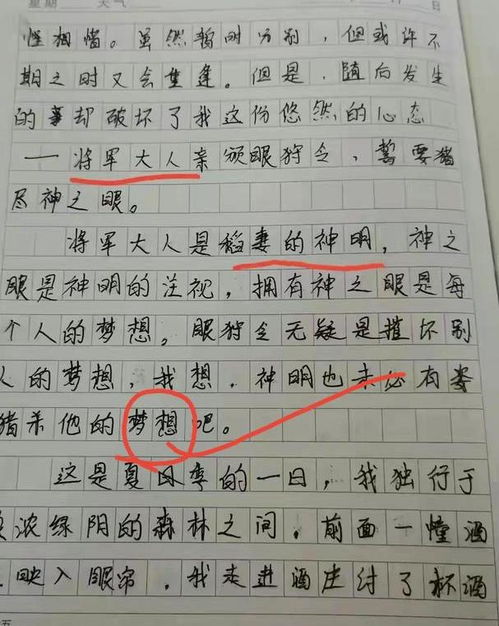 星期 天气 日
惺相惜。虽然暂时分别，但或许不
期之时又会重逢。但是，随后发生
的事却破坏了我这份悠然的心态
——将军大人亲颁眼狩令，誓要猎
尽神之眼。
将军大人是稻妻的神明，神之
眼是神明的注视，拥有神之眼是每
个人的梦想，眼狩令无疑是摧坏别
人的梦想，我想，神明也未必有
猎杀他的梦想吧。
这是夏日季的一日，我独行于
浓绿阴的森林之间，前面一幢酒
映入眼帘，我走进酒庄付了杯酒
五